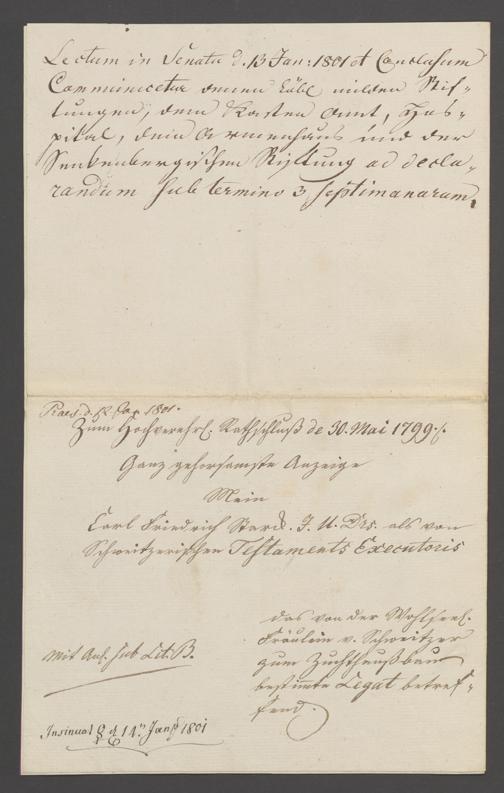 Lectum in Senatu d. 13 Jan: 1801 et Conclusum
Communicetur denen Löbl. milden Stif-
tungen, dem Kasten Amt, Hos-
pital, dem Armenhaus und der
Senkenbergischen Stiftung ad decla-
randum sub termino 3 septimanarum.
Praes. d. 12 Jan 1801.
Zum Hochverehrl. Rathschluß de 30. Mai 1799.
Ganz gehorsamste Anzeige
Mein
Carl Friedrich Starck. J. U. Drs. als von
Schweitzerischen Testaments Executoris
das von der Wohlseel.
Fräulein v. Schweitzer
zum Zuchthaußbau
bestimte Legat betref-
fend.
Mit Anl. sub Lit. B.
Insinuat d 14n Jan 1801